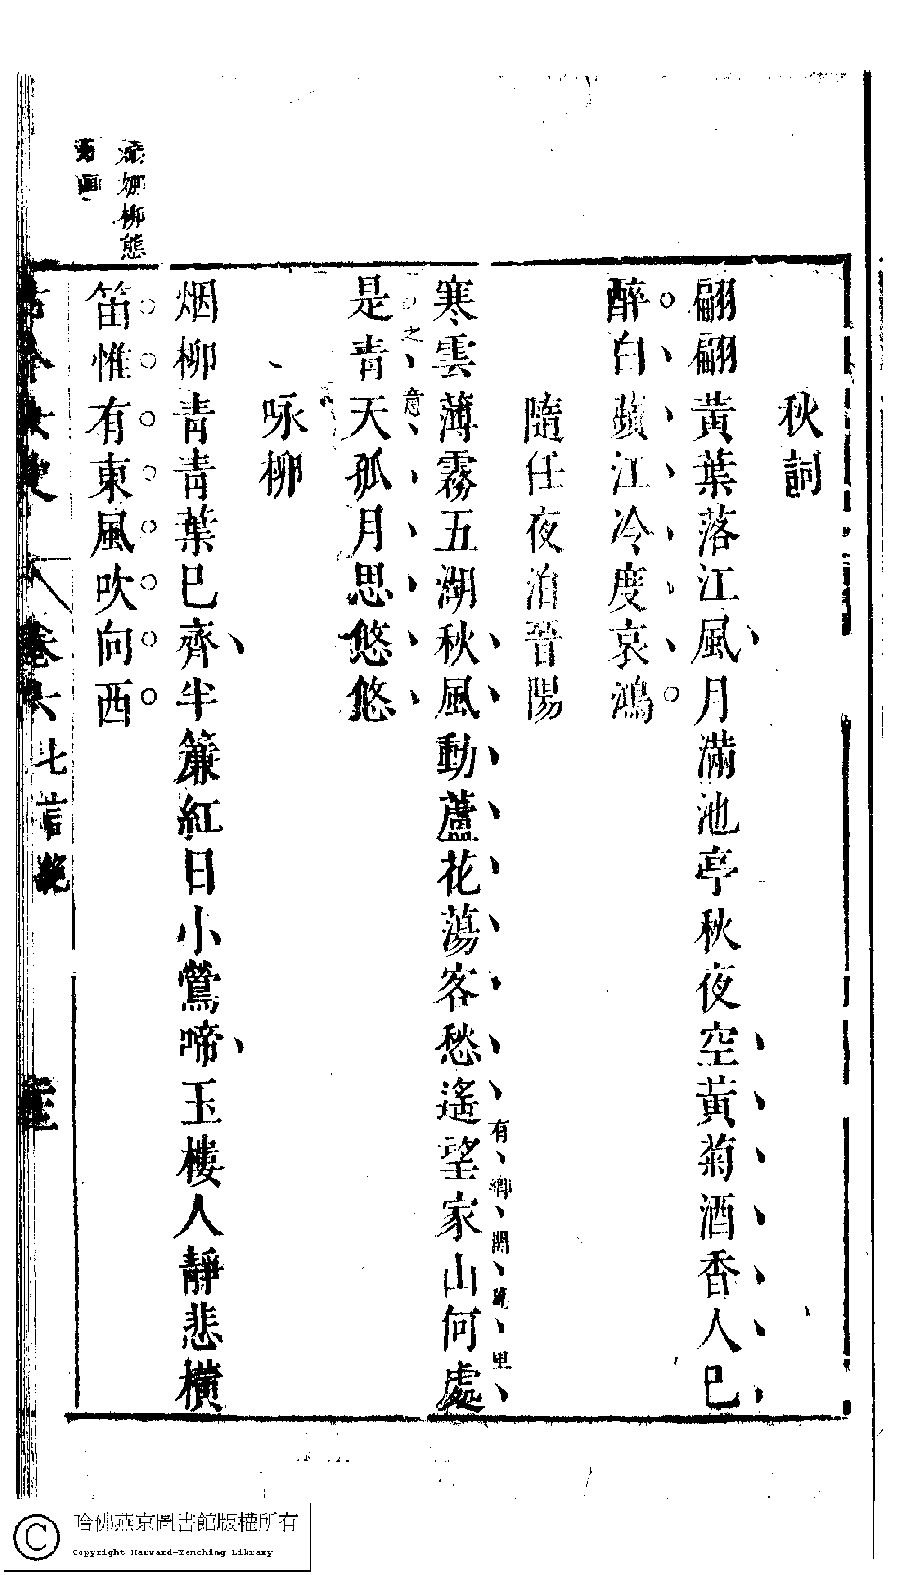 秋詞
翩翩黃葉落江風月滿池亭秋夜空黃菊酒香人已
醉白蘋江冷度哀鴻
隨任夜泊晉陽
寒雲薄霧五湖秋風動蘆花蕩客愁遙望家山何處
有鄉關萬里
是青天孤月思悠悠
之意
咏柳
烟柳青青葉已齊半簾紅日小鶯啼玉樓人靜悲橫
笛惟有東風吹向西
娜柳態
卷六
哈佛燕京圖書館版權所有
Copyright Harvard-Yenching Library